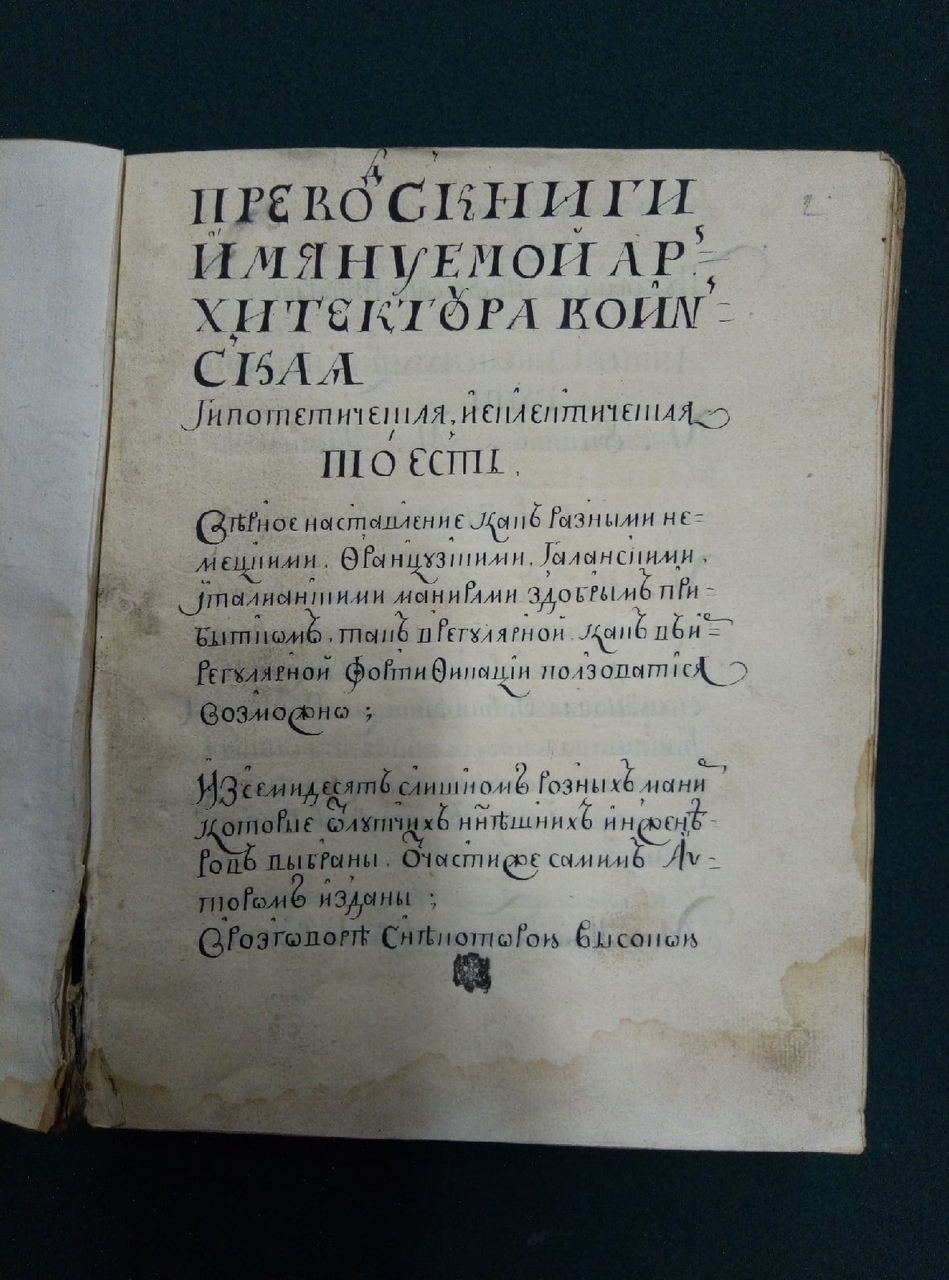 2
ПРЕВОД СКНИГИ
ИМЯНУЕМОЙ АР=
ХИТЕКТꙊРА ВОИН=
СКАѦ
Гипотетическая, иеклектическая
ТО ЕСТЬ.
Вѣрное наставление какъ разными не=
мецкими. Ѳранцузскими, Галанскими,
Италианскими манирами здобрымъ при=
быткомъ, такъ врегулярной какъ въи=
регулярной фортиѲикации ползоватися
возможнѡ ;
Изсемидесятъ слишкомъ розныхъ мани
которые ѿлутчихъ ннѣшнихъ инженѣ=
ровъ выбраны. Очастиже самимъ Аѵ=
торѡмъ изданы ;
Вроэгѡворѣ Снѣкоторою высокою